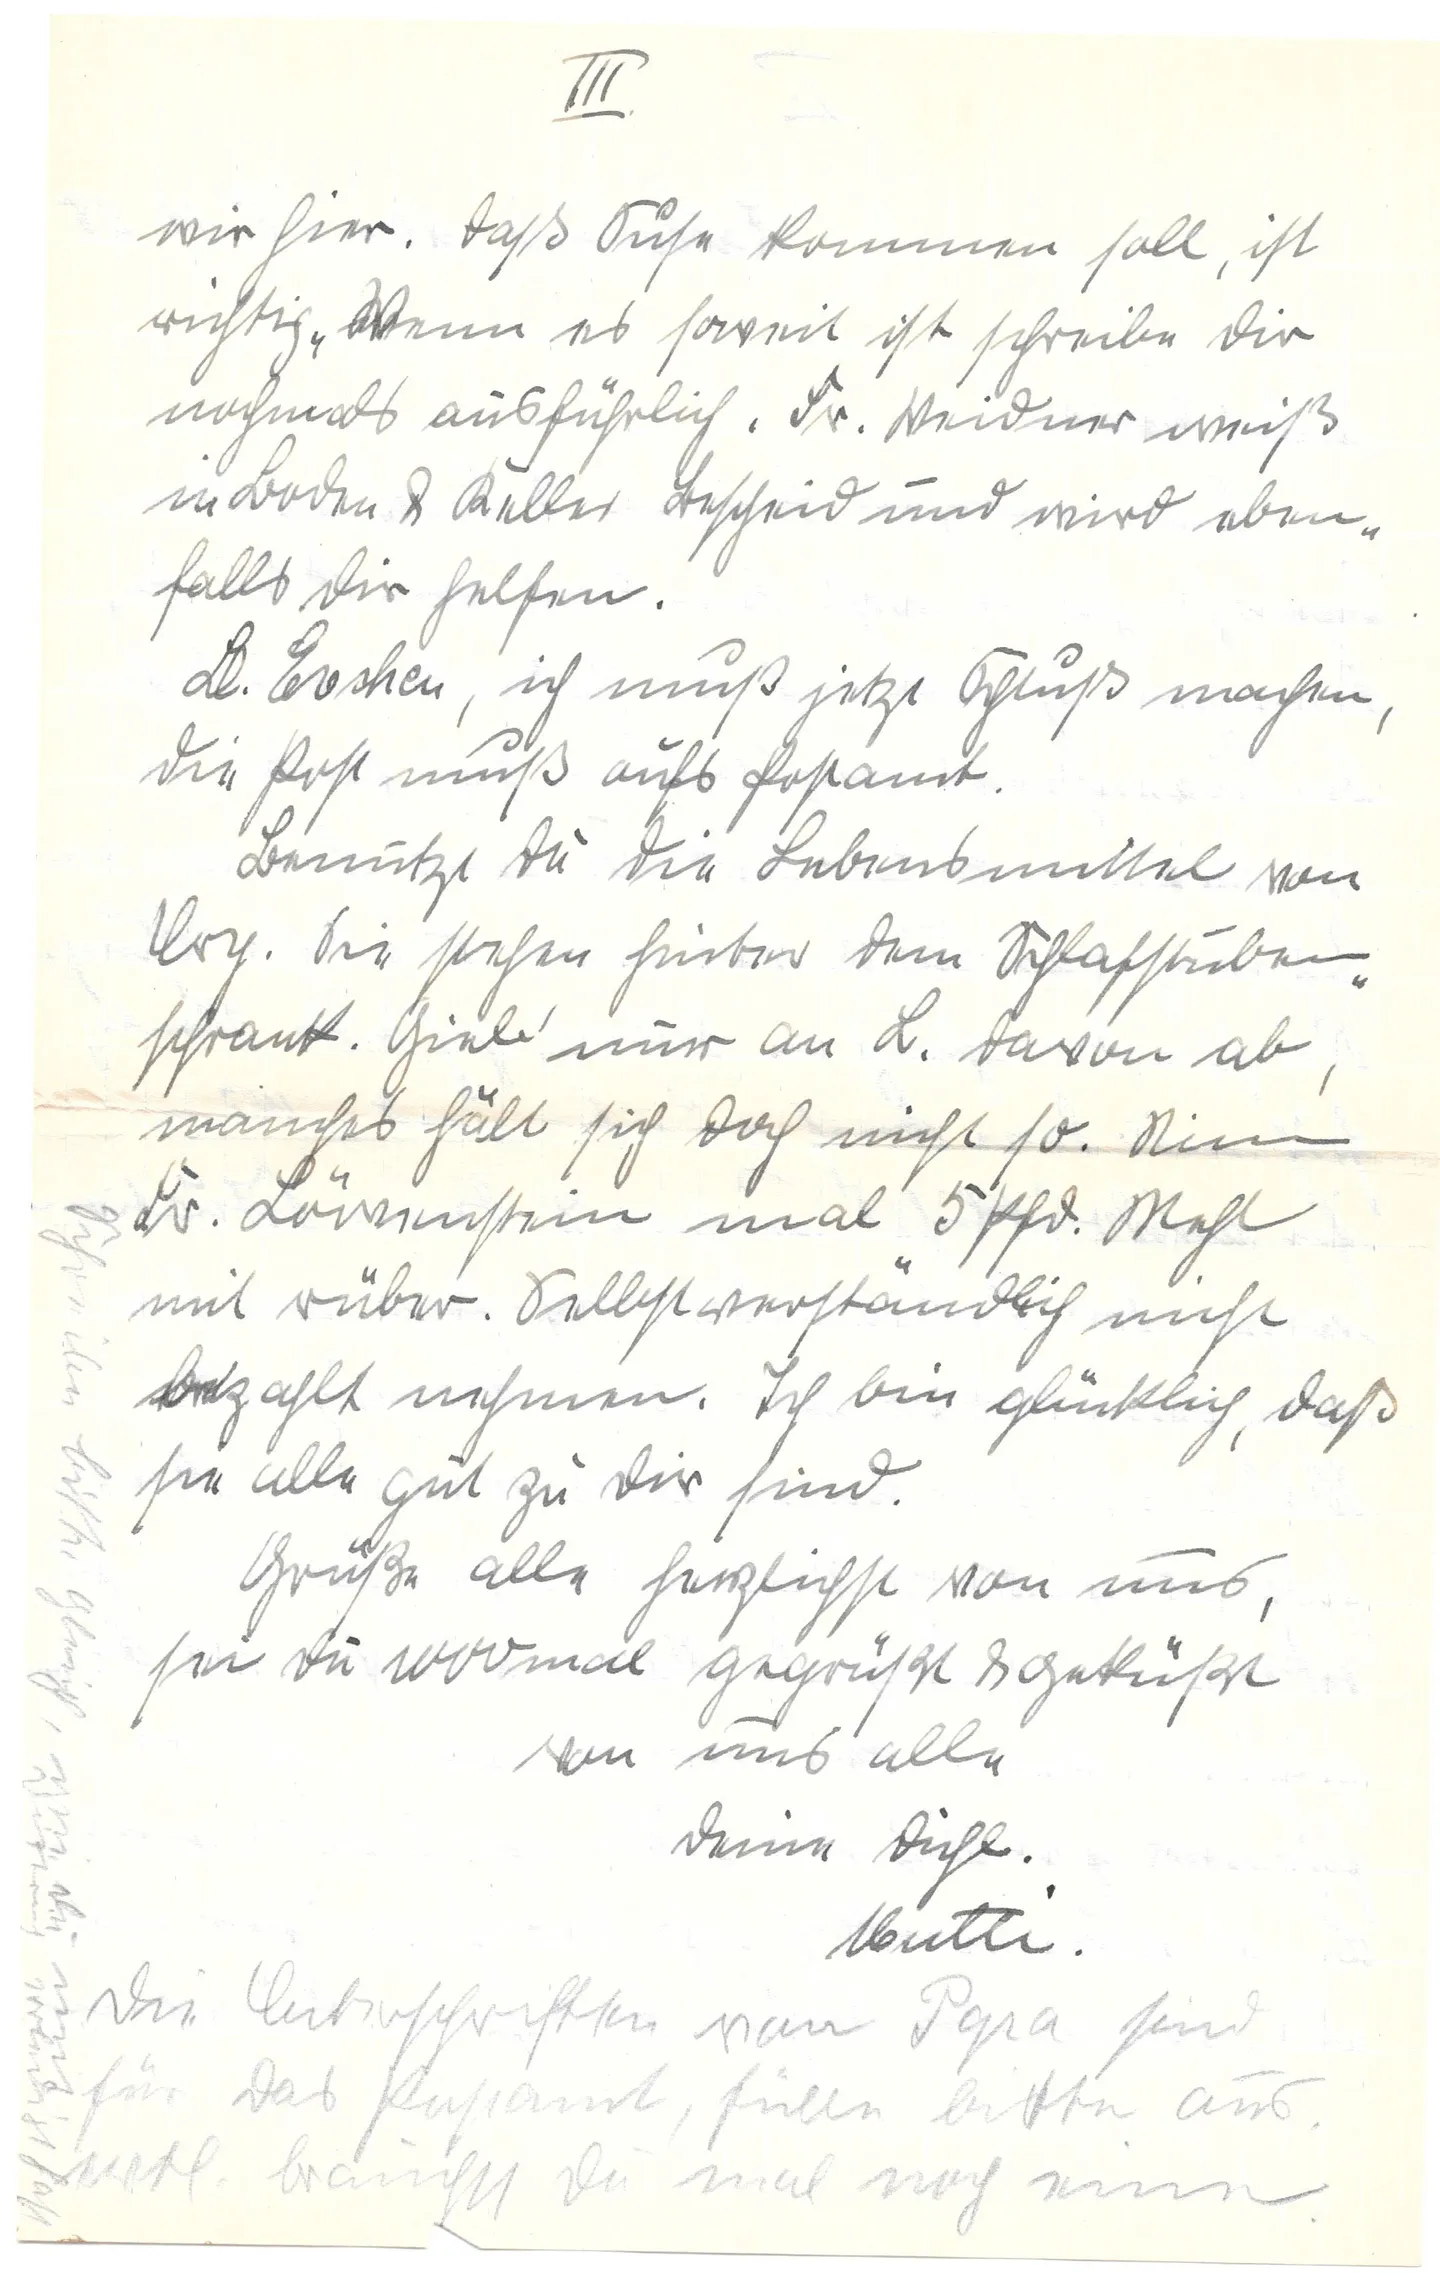 III.
wir hier. Daß Suse kommen soll, ist
richtig. Wenn es soweit ist schreibe dir
nochmals ausführlich. Fr. Weidner weiß
in Boden & Keller Bescheid und wird eben-
falls dir helfen.
Lb. Evchen, ich muß jetzt Schluß machen,
die Post muß aufs Postamt.
Benutze du die Lebensmittel von
Sie stehen hinter dem Schlafstuben-
schrank. Gieb' nur an L. davon ab,
manches hält sich doch nicht so. Nimm
Fr. Löwenstein mal 5 Pfd. Mehl
mit rüber. Selbstverständlich nicht
bezahlt nehmen. Ich bin glücklich, daß
sie alle gut zu dir sind.
Grüße alle herzlichst von uns,
sei du 1000mal gegrüßt & geküßt
von uns alle
deine dichl.
Mutti.
Die Unterschriften von Papa sind
für das Postamt, fülle bitte aus.
evtl. brauchst du mal noch eine.